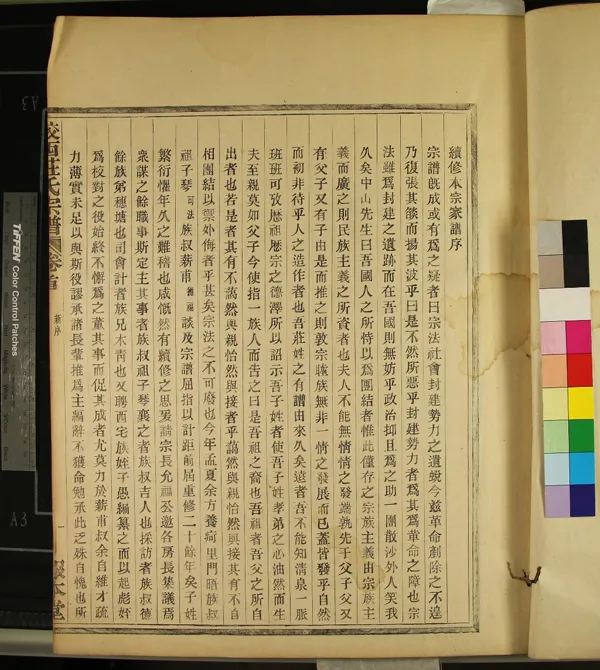 續修本宗家譜序
宗譜旣成或有爲之疑者曰宗法社會封建勢力之遺蛻今玆革命剷除之不遑
乃復張其燄而揚其波乎曰是不然所惡乎封建勢力者爲其爲革命之障也宗
法雖爲封建之遺跡而在吾國則無妨乎政治抑且爲之助一團散沙外人笑我
久矣中山先生曰吾國人之所恃以爲團結者惟此僅存之宗族主義由宗族主
義而廣之則民族主義之所資者也夫人不能無情情之發端孰先于父子父又
有父子又有子由是而推之則敦宗睦族無非一情之發展而已蓋皆發乎自然
而初非待乎人之造作者也吾莊姓之有譜由來久矣遠者吾不能知淸泉一脈
班班可攷歷祖歷宗之德澤所以詔示吾子姓者使吾子姓孝弟之心油然而生
夫至親莫如父子今使指一族人而告之曰是吾祖之裔也吾祖者吾父之所自
出者也若是者其有不藹然與親怡然與接者乎藹然與親怡然與接其有不自
相團結以禦外侮者乎甚矣宗法之不可廢也今年孟夏余方養疴里門晤族叔
祖子琴可法族叔薪甫 談及宗譜屈指以計距前屆重修二十餘年矣子姓
繁衍懼年久之難稽也咸慨然有續修之思爰請宗長允福公邀各房長集議焉
衆謀之餘職事斯定主其事者族叔祖子琴襄之者族叔吉人也採訪者族叔德
餘族弟穗塘也司會計者族兄木靑也又聘西宅族姪子愚編纂之而以起彪姪
爲校對之役始終不懈爲之董其事而促其成者尤莫力於薪甫叔余自維才疏
力薄實未足以與斯役謬承諸長輩推爲主編辭不獲命勉承此乏殊自愧也所
莊氏宗譜
卷首
新序
一